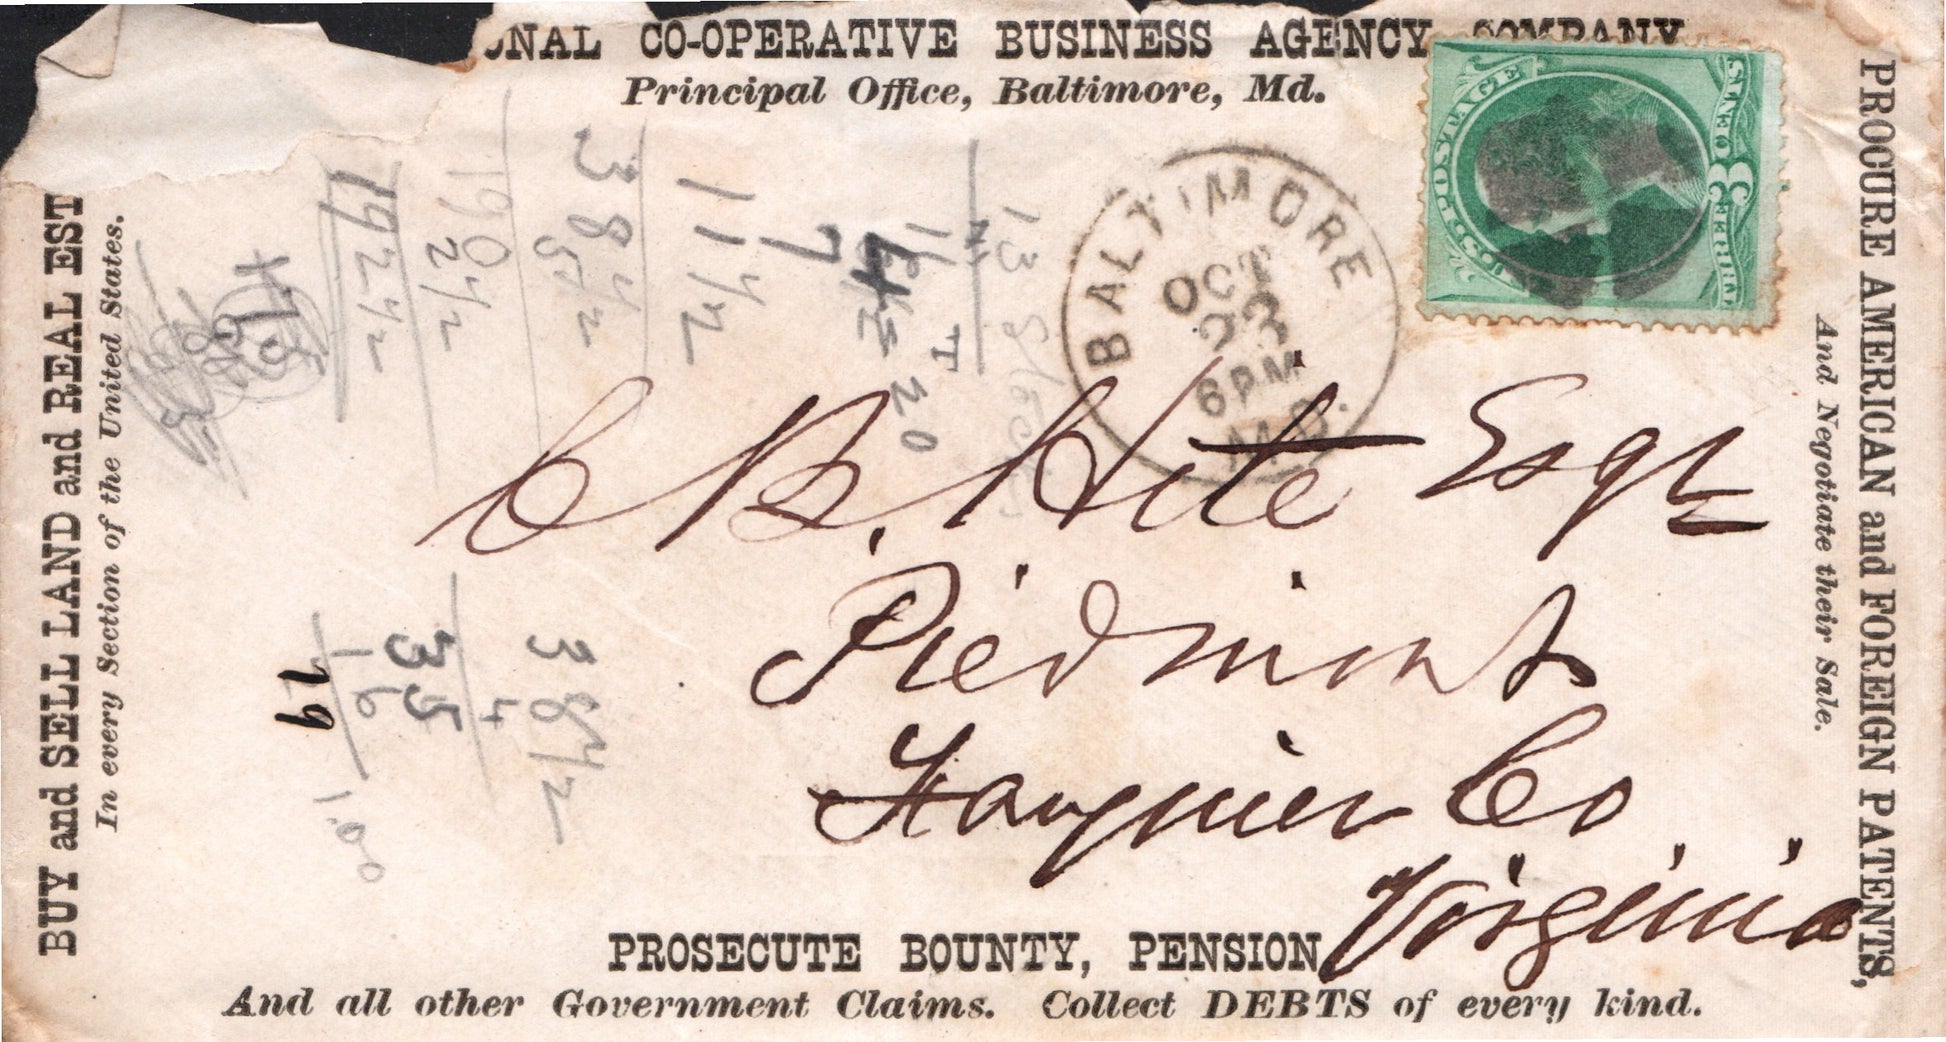 ONAL CO-OPERATIVE BUSINESS AGENCY COMPANY
Principal Office, Baltimore, Md.
BUY and SELL LAND and REAL EST
In every Section of the United States.
PROCURE AMERICAN and FOREIGN PATENTS,
And Negotiate their Sale.
U.S. POSTAGE
3
BALTIMORE
OCT
23
6PM
MD.
C B. Hite Esqr
Piedmont
Fauquier Co
Virginia
13 Stock
T
20
7
11 1/2
38 1/2
5 1/2
190
2 1/2
192 1/2
38 1/2
4
35
16
19
1,00
PROSECUTE BOUNTY, PENSION
And all other Government Claims. Collect DEBTS of every kind.